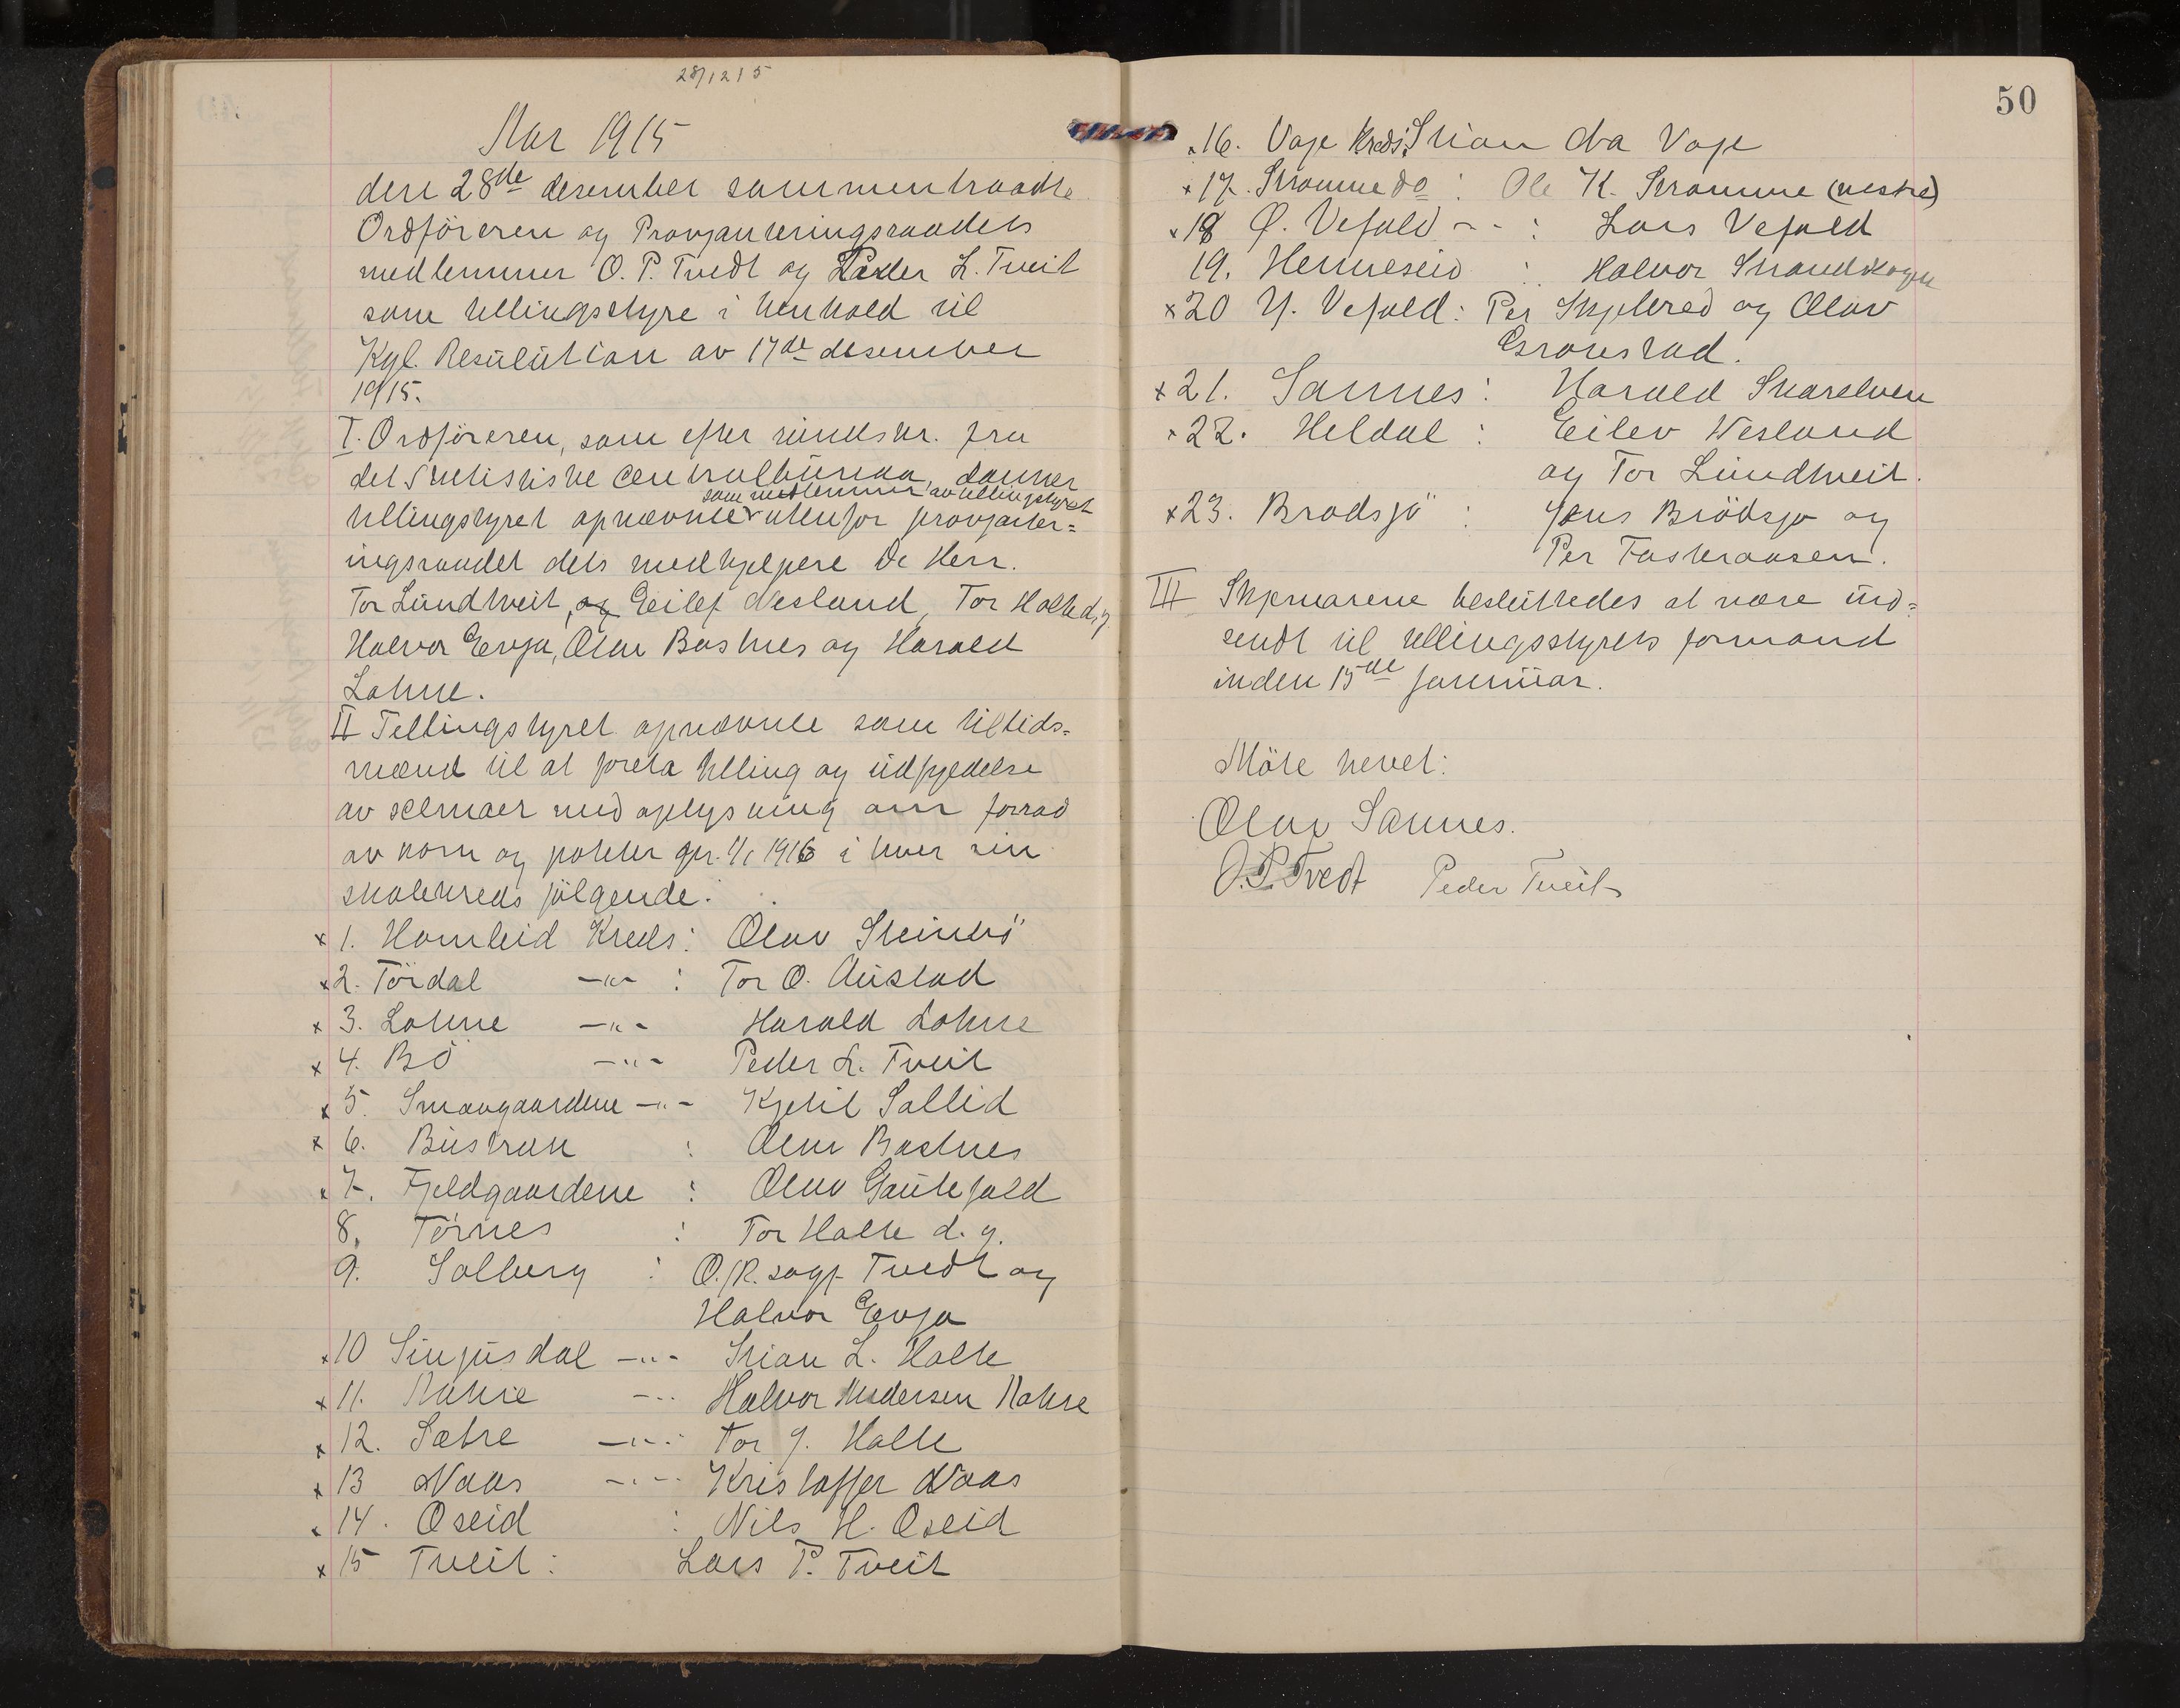 28/12 15
Aar 1915
den 28de desember sammentraadte
Ordföreren og Provianteringsraadets
medlemmer O. P. Tvedt og Peder L. Tveit
som tellingsstyre i henhold til
Kgl. Resulution av 17de desember
1915.
I. Ordföreren, som efter rundskr. fra
det Statistiske Centralbureau, danner
som medlemmer av tellingstyret
tellingstyret opnævnte utenfor provianter=
ingsraadet dets medhjelpere De Herr.
Tor Lundtveit, og Eilef Nesland, Tor Holte d.y.
Halvor Evja, Olav Bostnes og Harald
Lohne.
II Tellingstyret opnævnte som tiltids=
mænd til at foreta telling og utfyldelse
av skemaer med oplysning om forraad
av korn og poteter pr. 1/1 1916 i hver sin
skolekreds fölgende:
x 1. Homleid Kreds: Olav Steinbö
x 2. Tördal -"- : Tor O. Austad
x 3. Lohne -"- Harald Lohne
x 4. Bö -"- Peder L. Tveit
x 5. Smaagaardene -"- Kjetil Sollid
x 6. Bustrak : Olav Bostnes
x 7. Fjeldgaardene : Olav Gautefald
8. Törnes : Tor Holte d. y.
9. Solberg : O. P. sogf. Tvedt og
Halvor Evja
x 10 Sinjusdal -"- Stian L. Holte
x 11. Nakse -"- Halvor Andersen Nakse
x 12. Sætre -"- : Tor J. Holte
x 13 Naas -"- Kristoffer Naas
x 14. Oseid : Nils H. Oseid
x 15 Tveit : Lars P. Tveit
50
x 16. Vaje Kreds: Stian Vaje
x 17. Stromme do : Ole K. Stromme (vestre)
x 18 Ö. Vefald -"- : Lars Vefald
19. Henneseid : Halvor Strandskogen
x 20 Y. Vefald : Per Skjelbred og Olav
Gronstad.
x 21. Sannes : Harald Snarelven
x 22. Heldal : Eilev Nesland
og Tor Lundtveit.
x 23. Brødsjö : Jens Brödsjö og
Per Fosteraasen.
III Skjemaerne besluttedes at være ind=
sendt til tellingsstyrets formand
inden 15de januar.
Möte hevet:
Olav Sannes.
O. P. Tvedt Peder Tveit